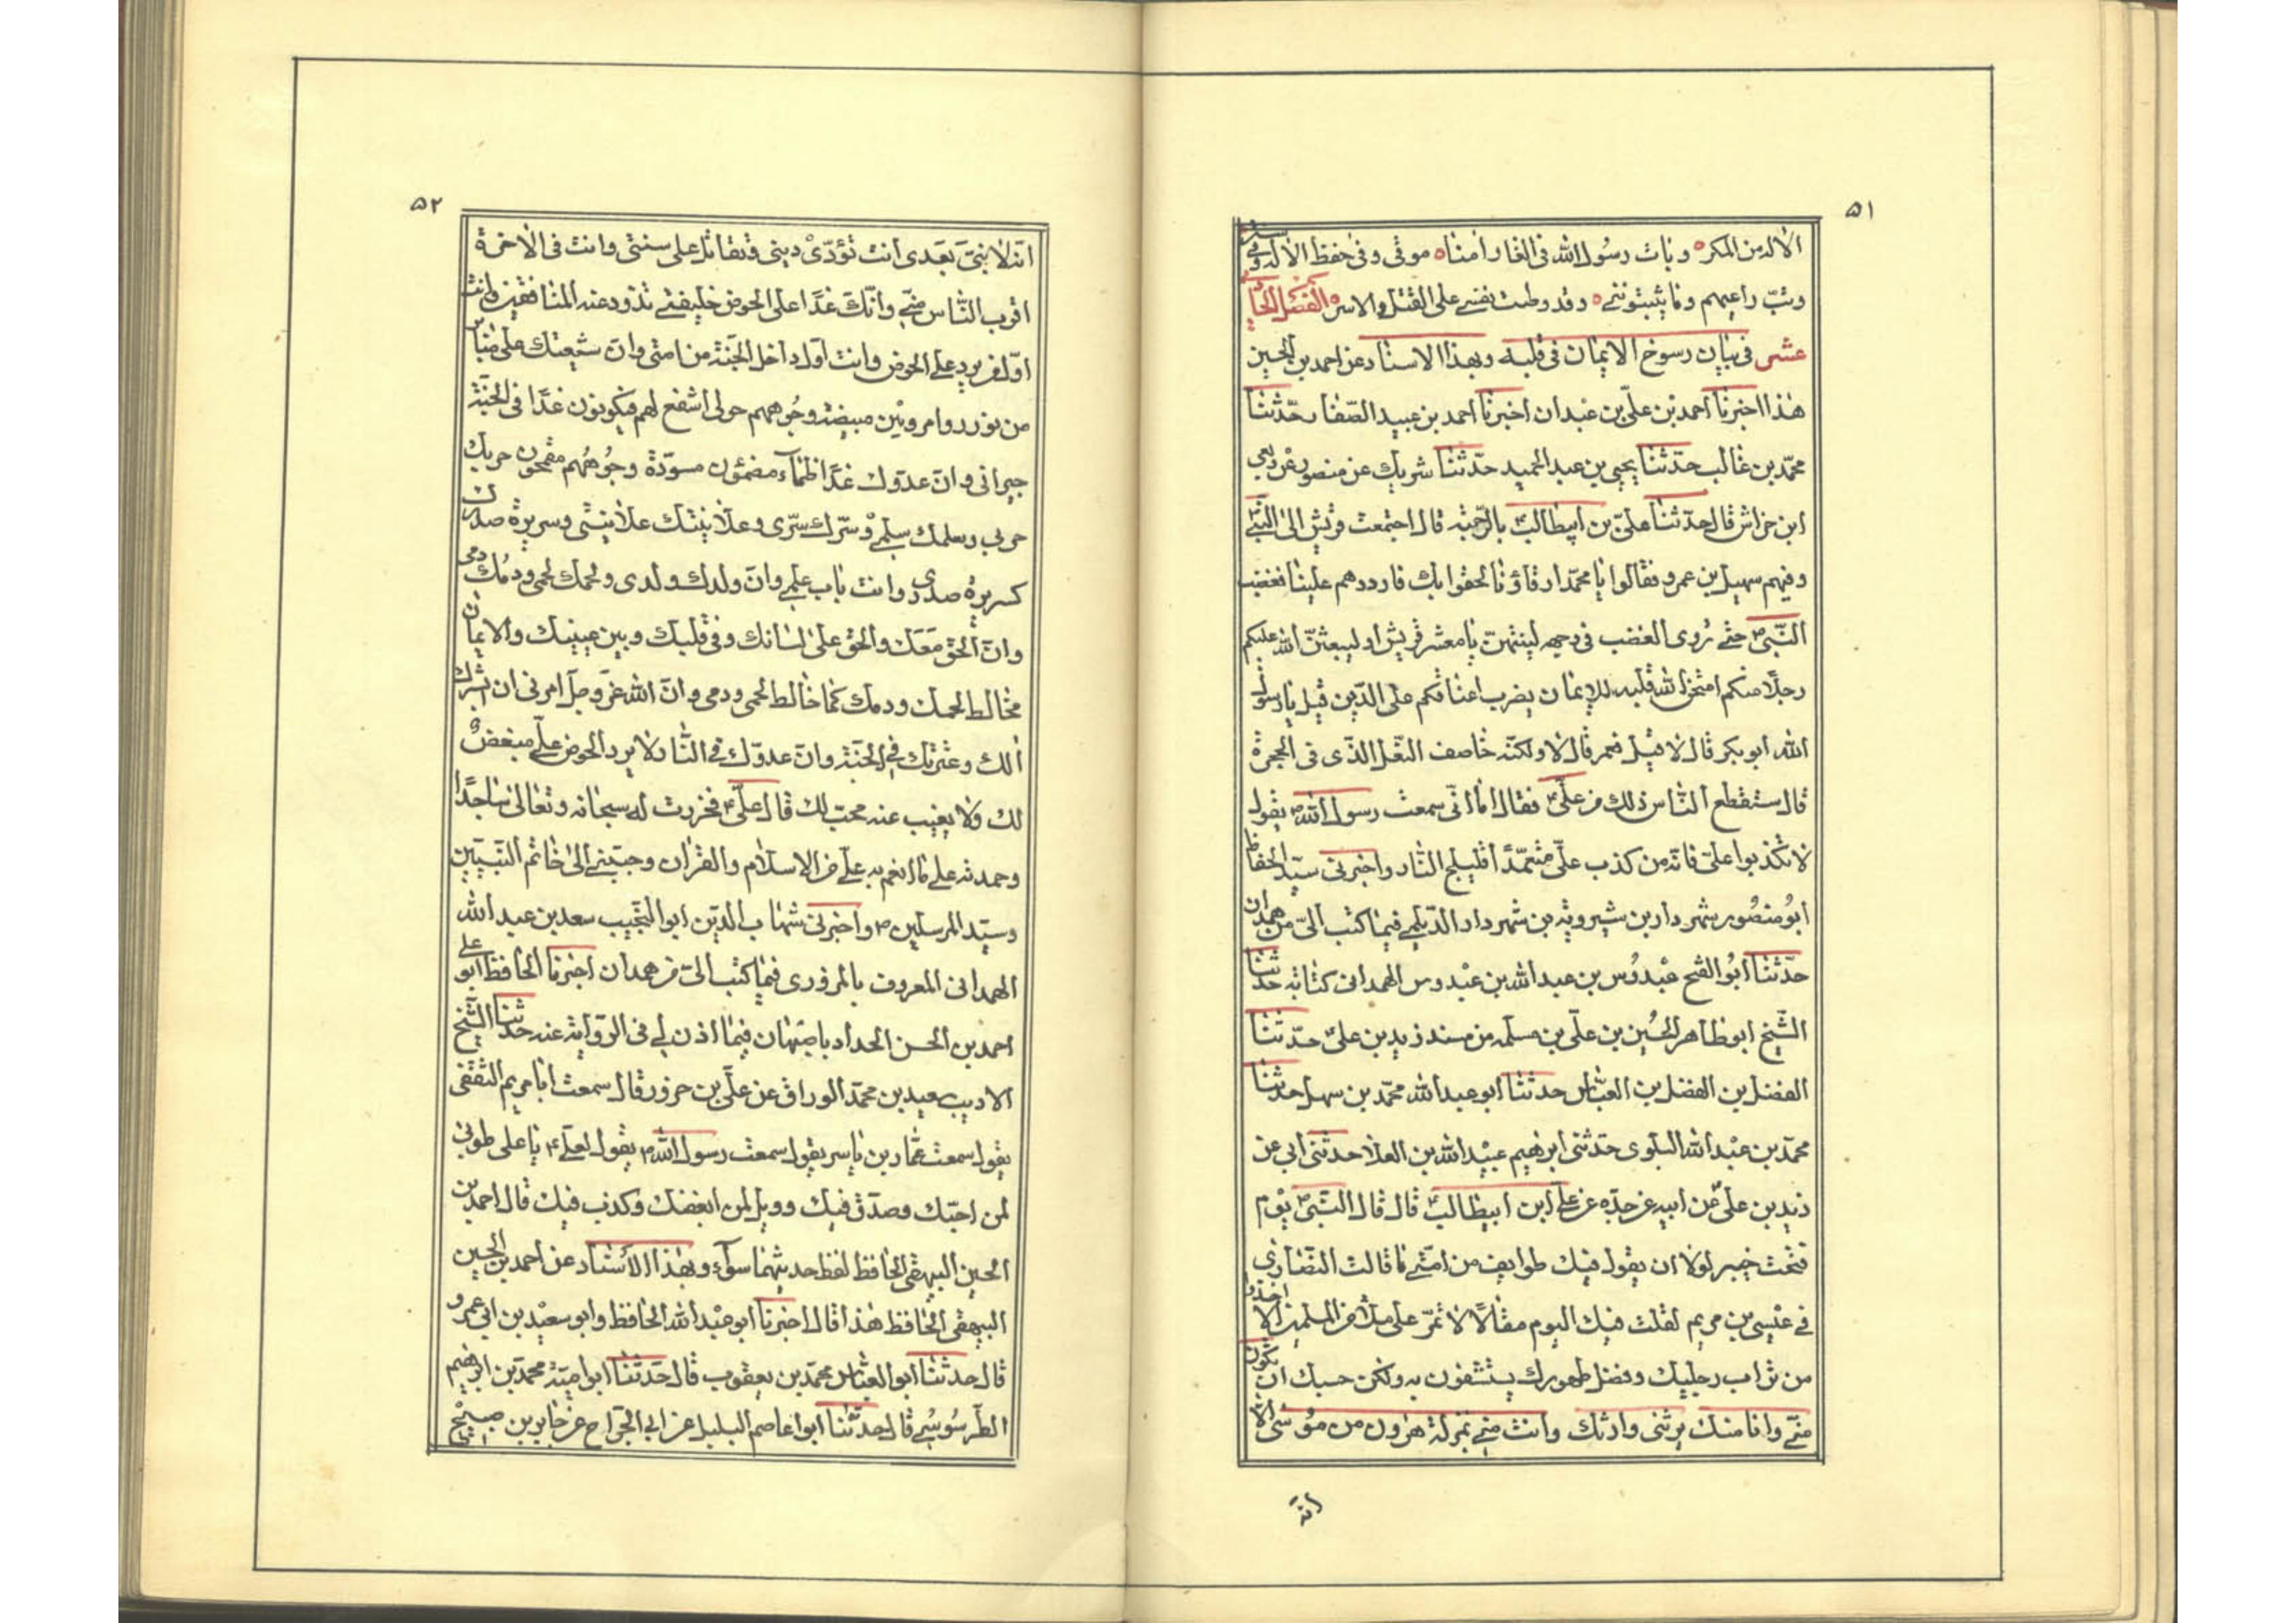 ۵۱
الاله من المكره وبات رسول الله فى الغار امناه موقى وفى حفظ الاله وفى ستر
وبتّ راعيهم وما يثبتوننى ه وقد وطنت نفسى على القتل والاسره الفصل الخامس
عشر فى بيان رسوخ الايمان فى قلبه وبهذا الاسناد عن احمد بن الحسين
هذا اخبرنا احمد بن علىّ بن عبدان اخبرنا احمد بن عبيد الصّفار حدّثنا
محمّد بن غالب حدّثنا يحيى بن عبد الحميد حدّثنا شريك عن منصور عن ربعى
ابن خراش قال حدّثنا علىّ بن ابيطالب بالرّحبة قال اجتمعت قريش الى النبىّ
وفيهم سهيل بن عمرو فقالوا يا محمّد ارقاؤنا لحقوا بك فارددهم علينا فغضب
النّبىّ ص حتى رُوى الغضب فى وجهه لينتهنّ يا معشر قريش او ليبعثنّ الله عليكم
رجلًا منكم امتحن الله قلبه للايمان يضرب اعناقكم على الدّين قيل يا رسول
الله ابو بكر قال لا قيل فعمر قال لا ولكنّه خاصف النّعل الذّى فى الحجرة
قال ستقطع النّاس ذلك من علىّ فقال اما انّى سمعت رسول الله ص يقول
لا تكذبوا علىّ فانّه من كذب علىّ متعمّدًا فليلج النّار واخبرنى سيّد الحفاظ
ابو منصور شهردار بن شيرويه بن شهردار الدّيلمى فيما كتب الىّ من همدان
حدّثنا ابو الفتح عبدوس بن عبد الله بن عبدوس الهمدانى كتابة حدّثنا
الشّيخ ابو طاهر الحسين بن علىّ بن مسلمه من مسند زيد بن علىّ حدّثنا
الفضل بن الفضل بن العبّاس حدثنا ابو عبد الله محمّد بن سهل حدثنا
محمّد بن عبد الله البلوى حدّثنى ابرهيم عبيد الله بن العلا حدثنى ابى عن
زيد بن علىّ عن ابيه عن جدّه عن على ابن ابيطالب قال قال النّبىّ ص يوم
فتحت خيبر لولا ان يقول فيك طوايف من امّتى ما قالت النّصارى
فى عيسى بن مريم لقلت فيك اليوم مقالًا لا تمرّ على ملاء من المسلمين الا اخذوا
من تراب رجليك وفضل طهورك يستشفون به ولكن حسبك ان تكون
منّى وانا منك ترثنى وارثك وانت منّى بمنزلة هرون من موسى الا
انّه
۵۲
انّه لا نبىّ بعدى انت تؤدّى دينى وتقاتل على سنتى وانت فى الاخرة
اقرب النّاس منّى وانّك غدًا على الحوض خليفتى تذود عنه المنافقين وانت
اوّل من يرد على الحوض وانت اوّل داخل الجنّة من امتى وانّ شيعتك على منابر
من نور رواء مرويّين مبيضة وجوههم حولى اشفع لهم فيكونون غدًا فى الجنّة
جيرانى وانّ عدوّك غدًا ظماء مضمئون مسودّة وجوههم مقمحون حربك
حربى وسلمك سلمى وسرّك سرّى وعلانيتك علانيتى وسريرة صدرك
كسريرة صدرى وانت باب علمى وانّ ولدك ولدى ولحمك لحمى ودمك دمى
وانّ الحقّ معك والحق على لسانك وفى قلبك وبين عينيك والايمان
مخالط لحمك ودمك كما خالط لحمى ودمى وانّ الله عزّ وجلّ امرنى ان ابشرك
انك وعترتك فى الجنّة وانّ عدوّك فى النّار لا يرد الحوض علىّ مبغضٌ
لك ولا يغيب عنه محبّ لك قال علىّ ع فخررت له سبحانه وتعالى ساجدًا
وحمدته على ما انعم به علىّ من الاسلام والقران وحبّبنى الى خاتم النّبيّين
وسيّد المرسلين ص واخبرنى شهاب الدّين ابو النّجيب سعد بن عبد الله
الهمدانى المعروف بالمروزى فيما كتب الىّ من همدان اخبرنا الحافظ ابو على
احمد بن الحسن الحداد باصبهان فيما اذن لى فى الرّواية عنه حدّثنا الشّيخ
الاديب سعيد بن محمّد الوراق عن علىّ بن حزور قال سمعت ابا مريم الثقفى
يقول سمعت عمّار بن ياسر يقول سمعت رسول الله ص يقول لعلى ع يا على طوبى
لمن احبّك وصدّق فيك وويل لمن ابغضك وكذب فيك قال احمد بن
الحسين البيهقى الحافظ لفظ حديثهما سواء وبهذا الأسناد عن احمد بن الحسين
البيهقى الحافظ هذا قال اخبرنا ابو عبد الله الحافظ وابو سعيد بن ابى عمرو
قال حدثنا ابو العبّاس محمّد بن يعقوب قال حدّثنا ابو اميّة محمّد بن ابرهيم
الطّرسوسى قال حدّثنا ابو عاصم النبيل عن ابى الجرّاح عن جابر بن صبيح